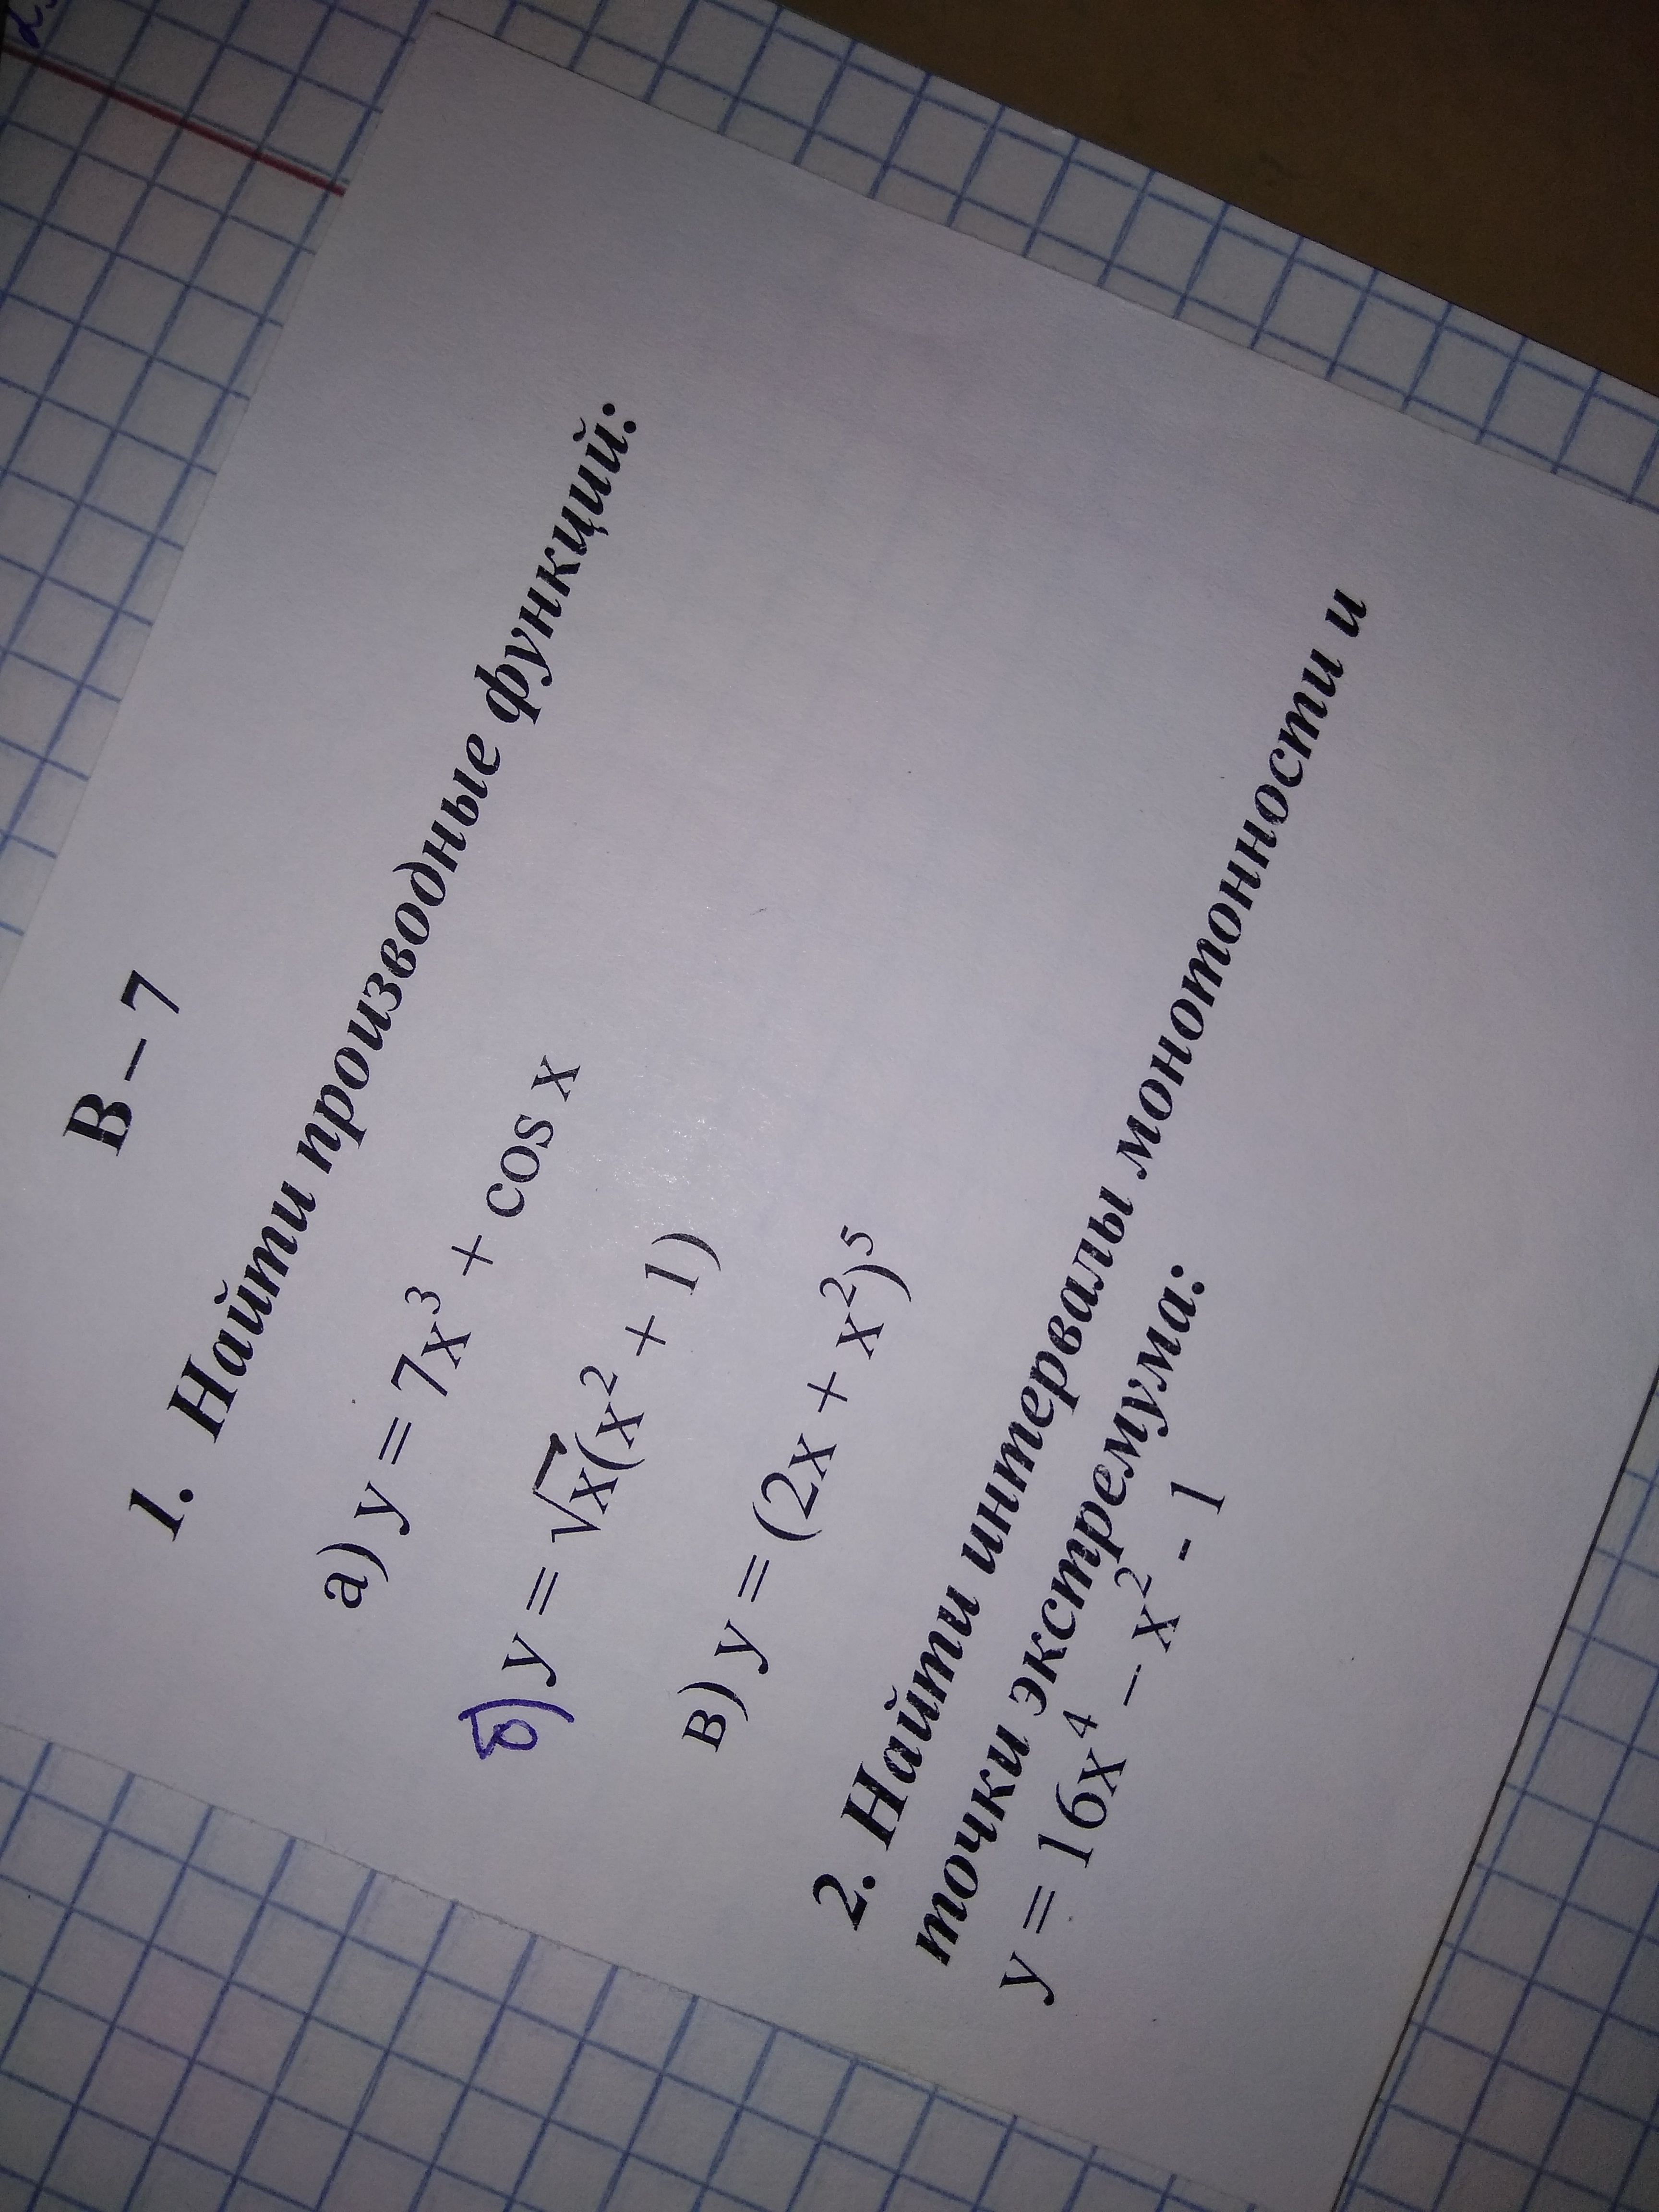 В – 7
1. Найти производные функций:
а) y = 7x³ + cos x
б) y = √x(x² + 1)
в) y = (2x + x²)⁵
2. Найти интервалы монотонности и
точки экстремума:
y = 16x⁴ – x² - 1